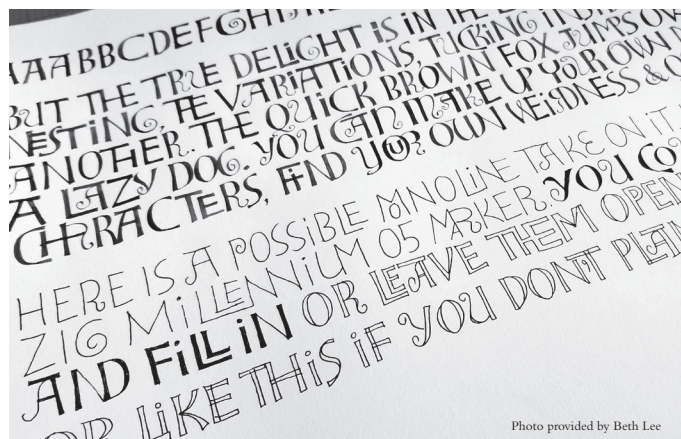 AAABBCDEFGHI
BUT THE TRUE DELIGHT IS IN THE
NESTING, THE VARIATIONS, TUCKING
ANOTHER. THE QUICK BROWN FOX JUMPS
A LAZY DOG. YOU CAN MAKE UP YOUR OWN
CHARACTERS, FIND YOUR OWN WEIRDNESS &
HERE IS A POSSIBLE MONOLINE TAKE ON IT.
ZIG MILLENNIUM 05 MARKER. YOU CO
AND FILL IN OR LEAVE THEM OPEN
OR LIKE THIS IF YOU DON'T PLAN
Photo provided by Beth Lee